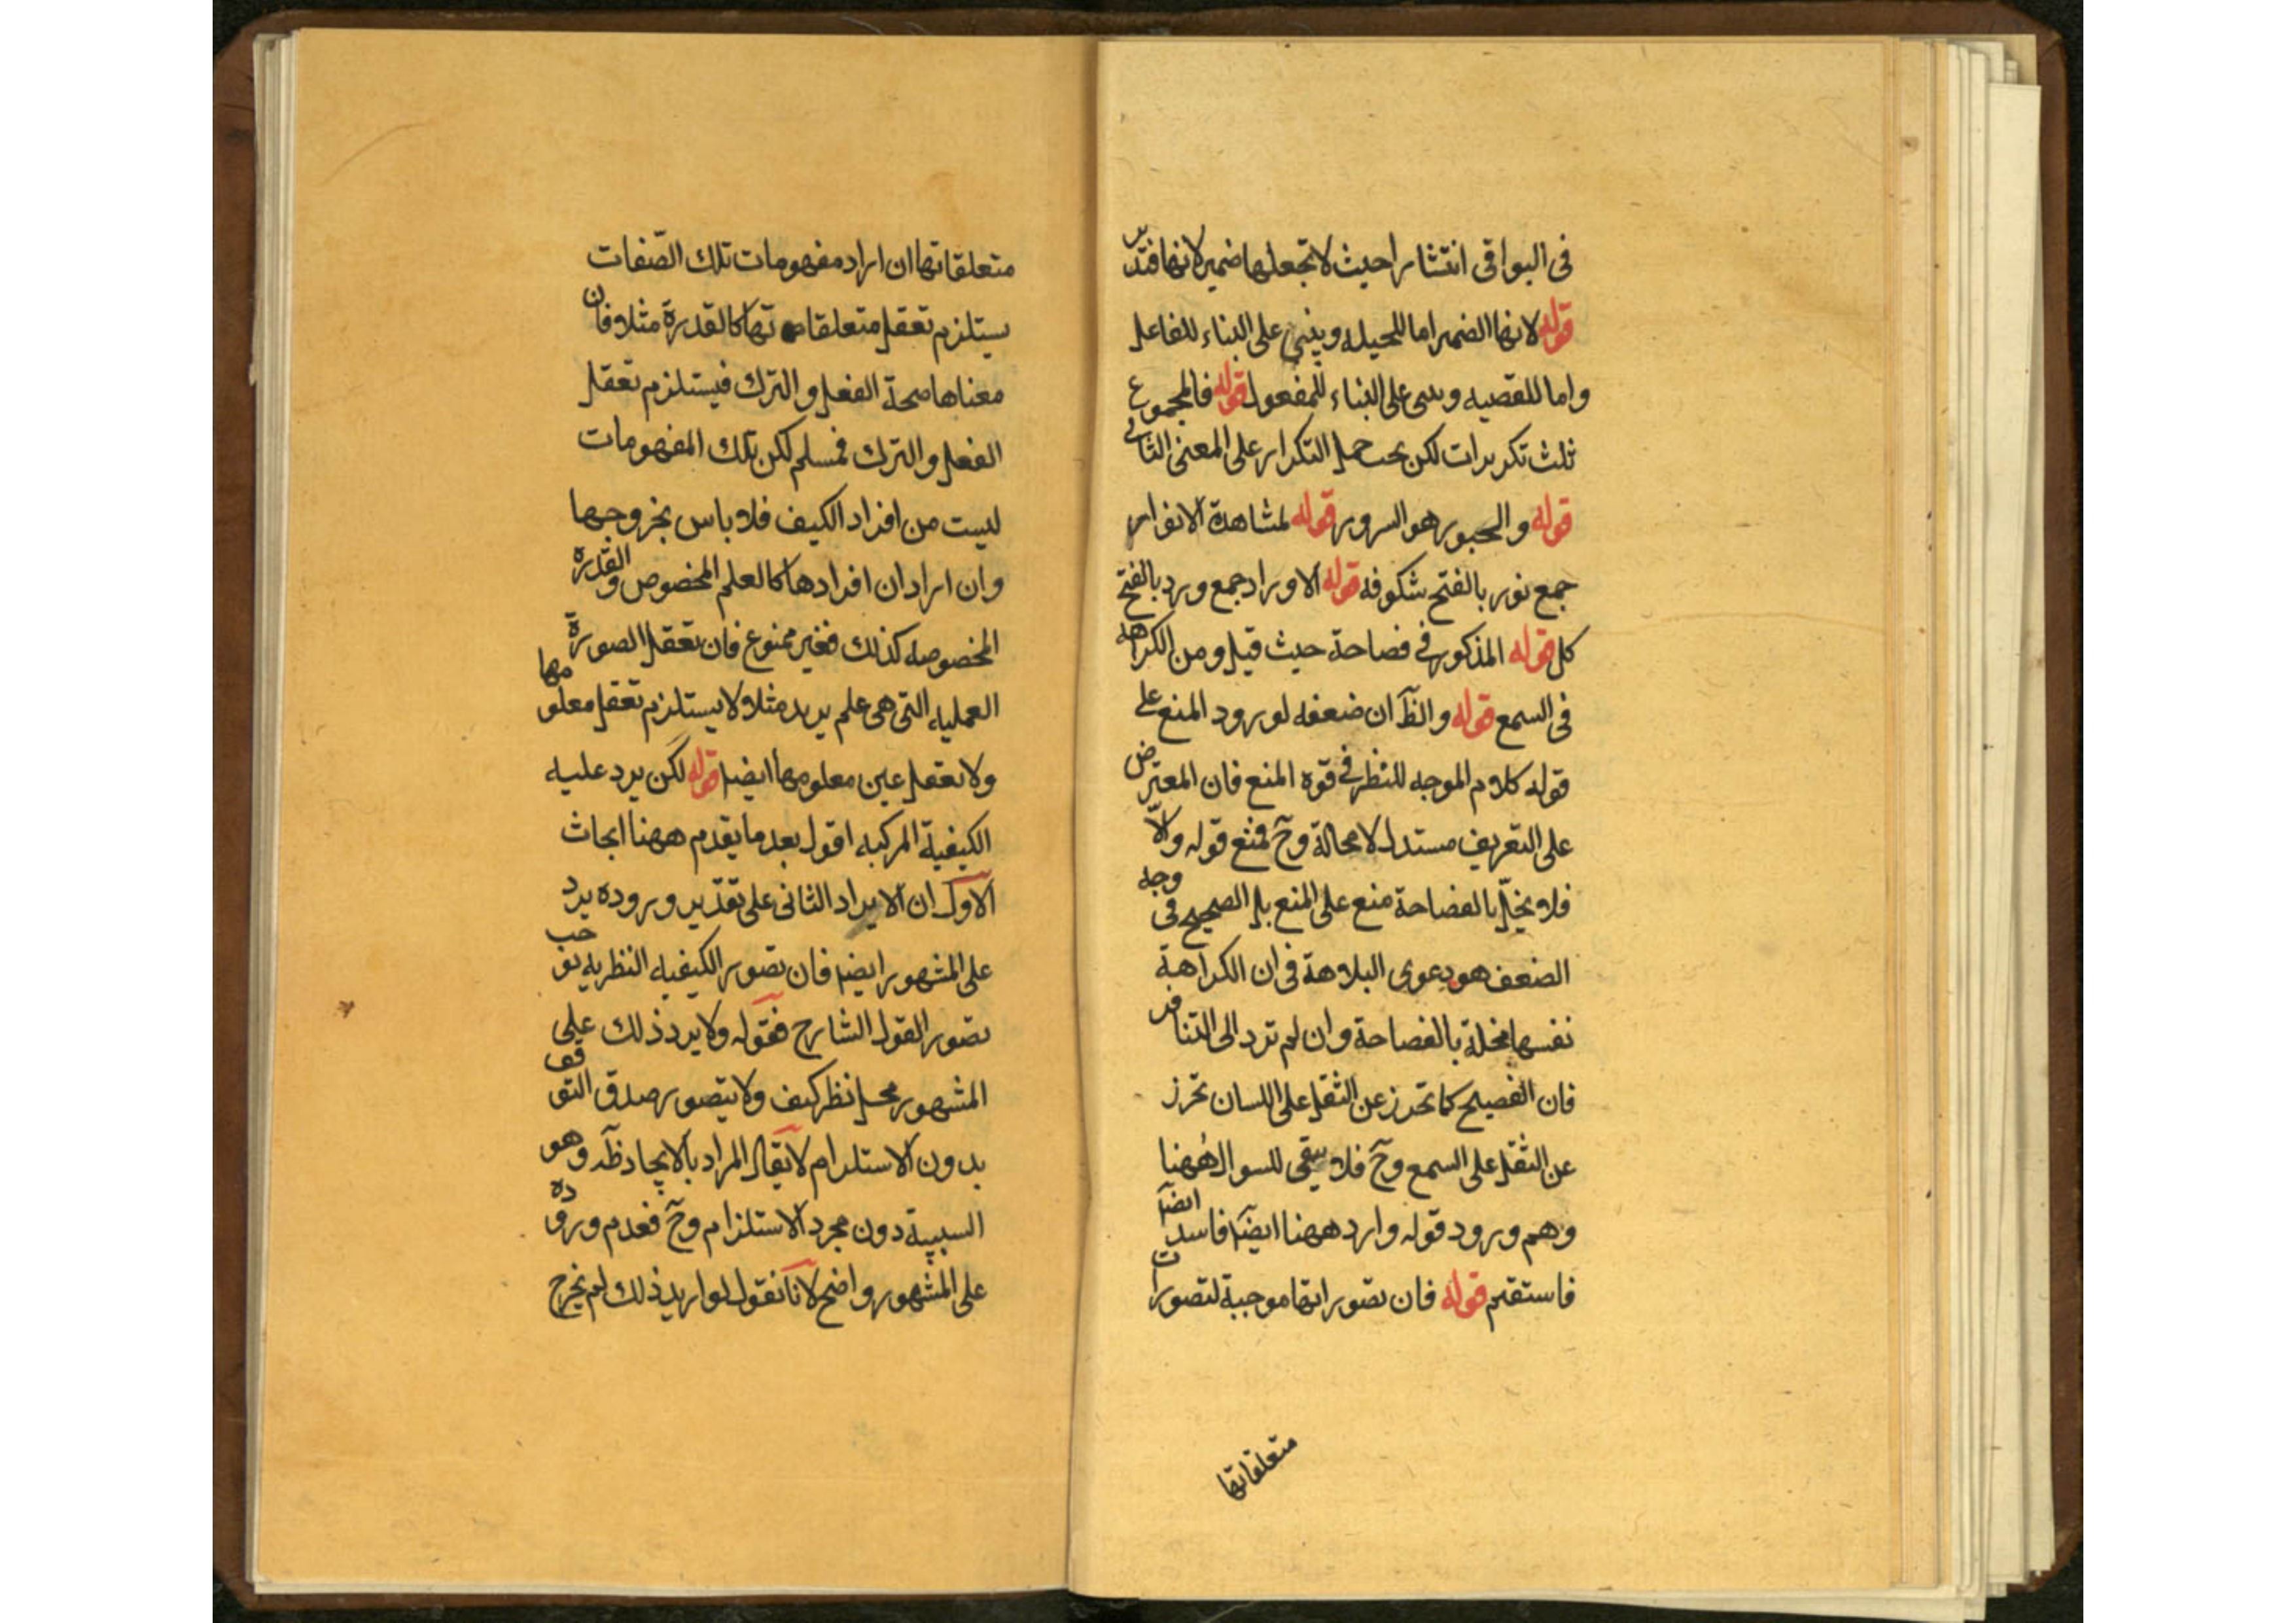 فى البواقى انتشارا حيث لا تجعلها ضمير لانها فتدبر
قوله لانها الضمير اما للمحيله ويبنى على البناء للفاعل
واما للقصيه وسى على البناء للمفعول قوله فالمجموع
ثلث تكريرات لكن يجب حمل التكرار على المعنى الثانى
قوله والحبور هو السرور قوله لمشاهدة الانوار
جمع نور بالفتح شكوفه قوله الاوراد جمع ورد بالفتح
كل قوله المذكور فى فصاحة حيث قيل ومن الكراهه
فى السمع قوله والظ ان ضعفه لورود المنع على
قوله كلام الموجه للنظر فى قوه المنع فان المعترض
على التعريف مستدل لا محالة وح فمنع قوله والّا
فلا يخلّ بالفصاحة منع على المنع بل الصحيح فى وجه
الضعف هو دعوى البداهة فى ان الكراهة
نفسها مخلة بالفصاحة وان لم ترد الى التنافر
فان الفصيح كما تحرز عن الثقل على اللسان تحرز
عن الثقل على السمع وح فلا يبقى للسوال ههنا
وهم ورود قوله وارد ههنا ايضا فاسد ايضا
فاستقم قوله فان تصوراتها موجبة لتصورات
متعلقاتها
متعلقاتها ان اراد مفهومات تلك الصّفات
يستلزم تعقل متعلقاتها كالقدرة مثلا فان
معناها صحة الفعل والترك فيستلزم تعقل
الفعل والترك فمسلم لكن تلك المفهومات
ليست من افراد الكيف فلا باس بخروجها
وان اراد ان افرادها كالعلم المخصوص والقدرة
المخصوصه كذلك فغير ممنوع فان تعقل الصورة
العمليه التى هى علم يريد مثلا لا يستلزم تعقل معلومها
ولا تعقل عين معلومها ايضا قوله لكن يرد عليه
الكيفية المركبه اقول بعد ما يقدم ههنا ابحاث
الاول ان الايراد الثانى على تقدير وروده يرد
على المشهور ايضا فان تصور الكيفيه النظريه يوجب
تصور القول الشارح فقوله ولا يرد ذلك على
المشهور محل نظر كيف ولا يتصور صدق التوقف
بدون الاستلزام لا يقال المراد بالايجاد ظه وهو
السببية دون مجرد الاستلزام وح فعدم وروده
على المشهور واضح لانا نقول لو اريد ذلك لم يخرج